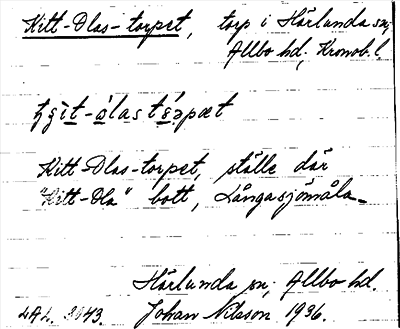 Kitt-Olas-torpet, torp i Härlunda sn,
Allbo hd, Kronob. l.
Kitt-Olas-torpet, ställe där
"Kitt-Ola" bott, Långasjömåla.
Härlunda sn, Allbo hd.
LAL. 3043. Johan Nilsson 1936.